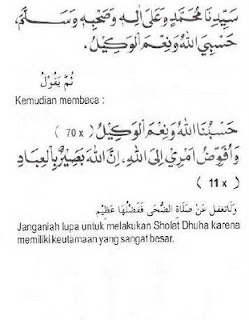 سَيِّدِنَا مُحَمَّدٍ وَعَلَى اٰلِهِ وَصَحْبِهِ وَسَلَّمَ،
حَسْبِيَ اللهُ وَنِعْمَ الْوَكِيْلُ.
ثُمَّ يَقُوْلُ
Kemudian membaca :
حَسْبُنَا اللهُ وَنِعْمَ الْوَكِيْلُ ( 70 x )
وَاُفَوِّضُ اَمْرِيْ اِلَى اللهِ، اِنَّ اللهَ بَصِيْرٌ بِالْعِبَادِ
( 11 x )
وَلَاتَغْفُلْ عَنْ صَلَاةِ الضُّحٰى فَفَضْلُهَا عَظِيْمٌ
Janganlah lupa untuk melakukan Sholat Dhuha karena
memiliki keutamaan yang sangat besar.